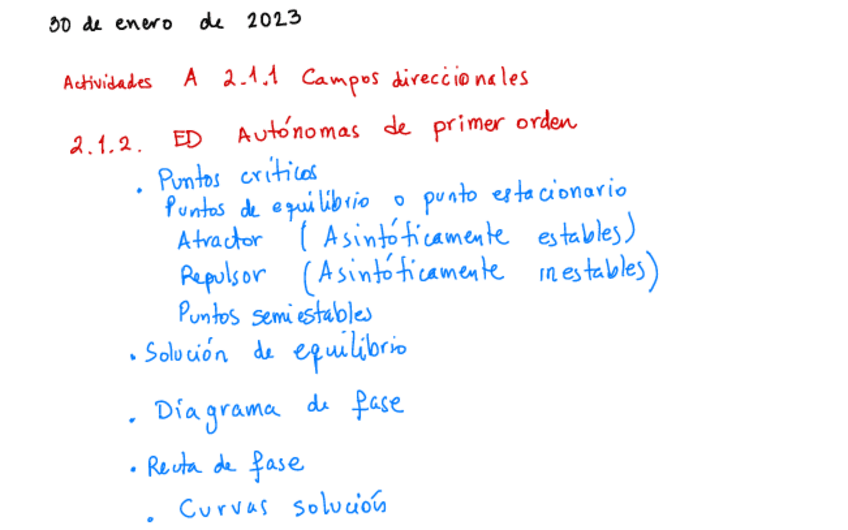 30 de enero de 2023
Actividades A 2.1.1 Campos direccionales
2.1.2. ED Autónomas de primer orden
• Puntos críticos
Puntos de equilibrio o punto estacionario
Atractor (Asintóticamente estables)
Repulsor (Asintóticamente inestables)
Puntos semiestables
• Solución de equilibrio
• Diagrama de fase
• Recta de fase
• Curvas solución